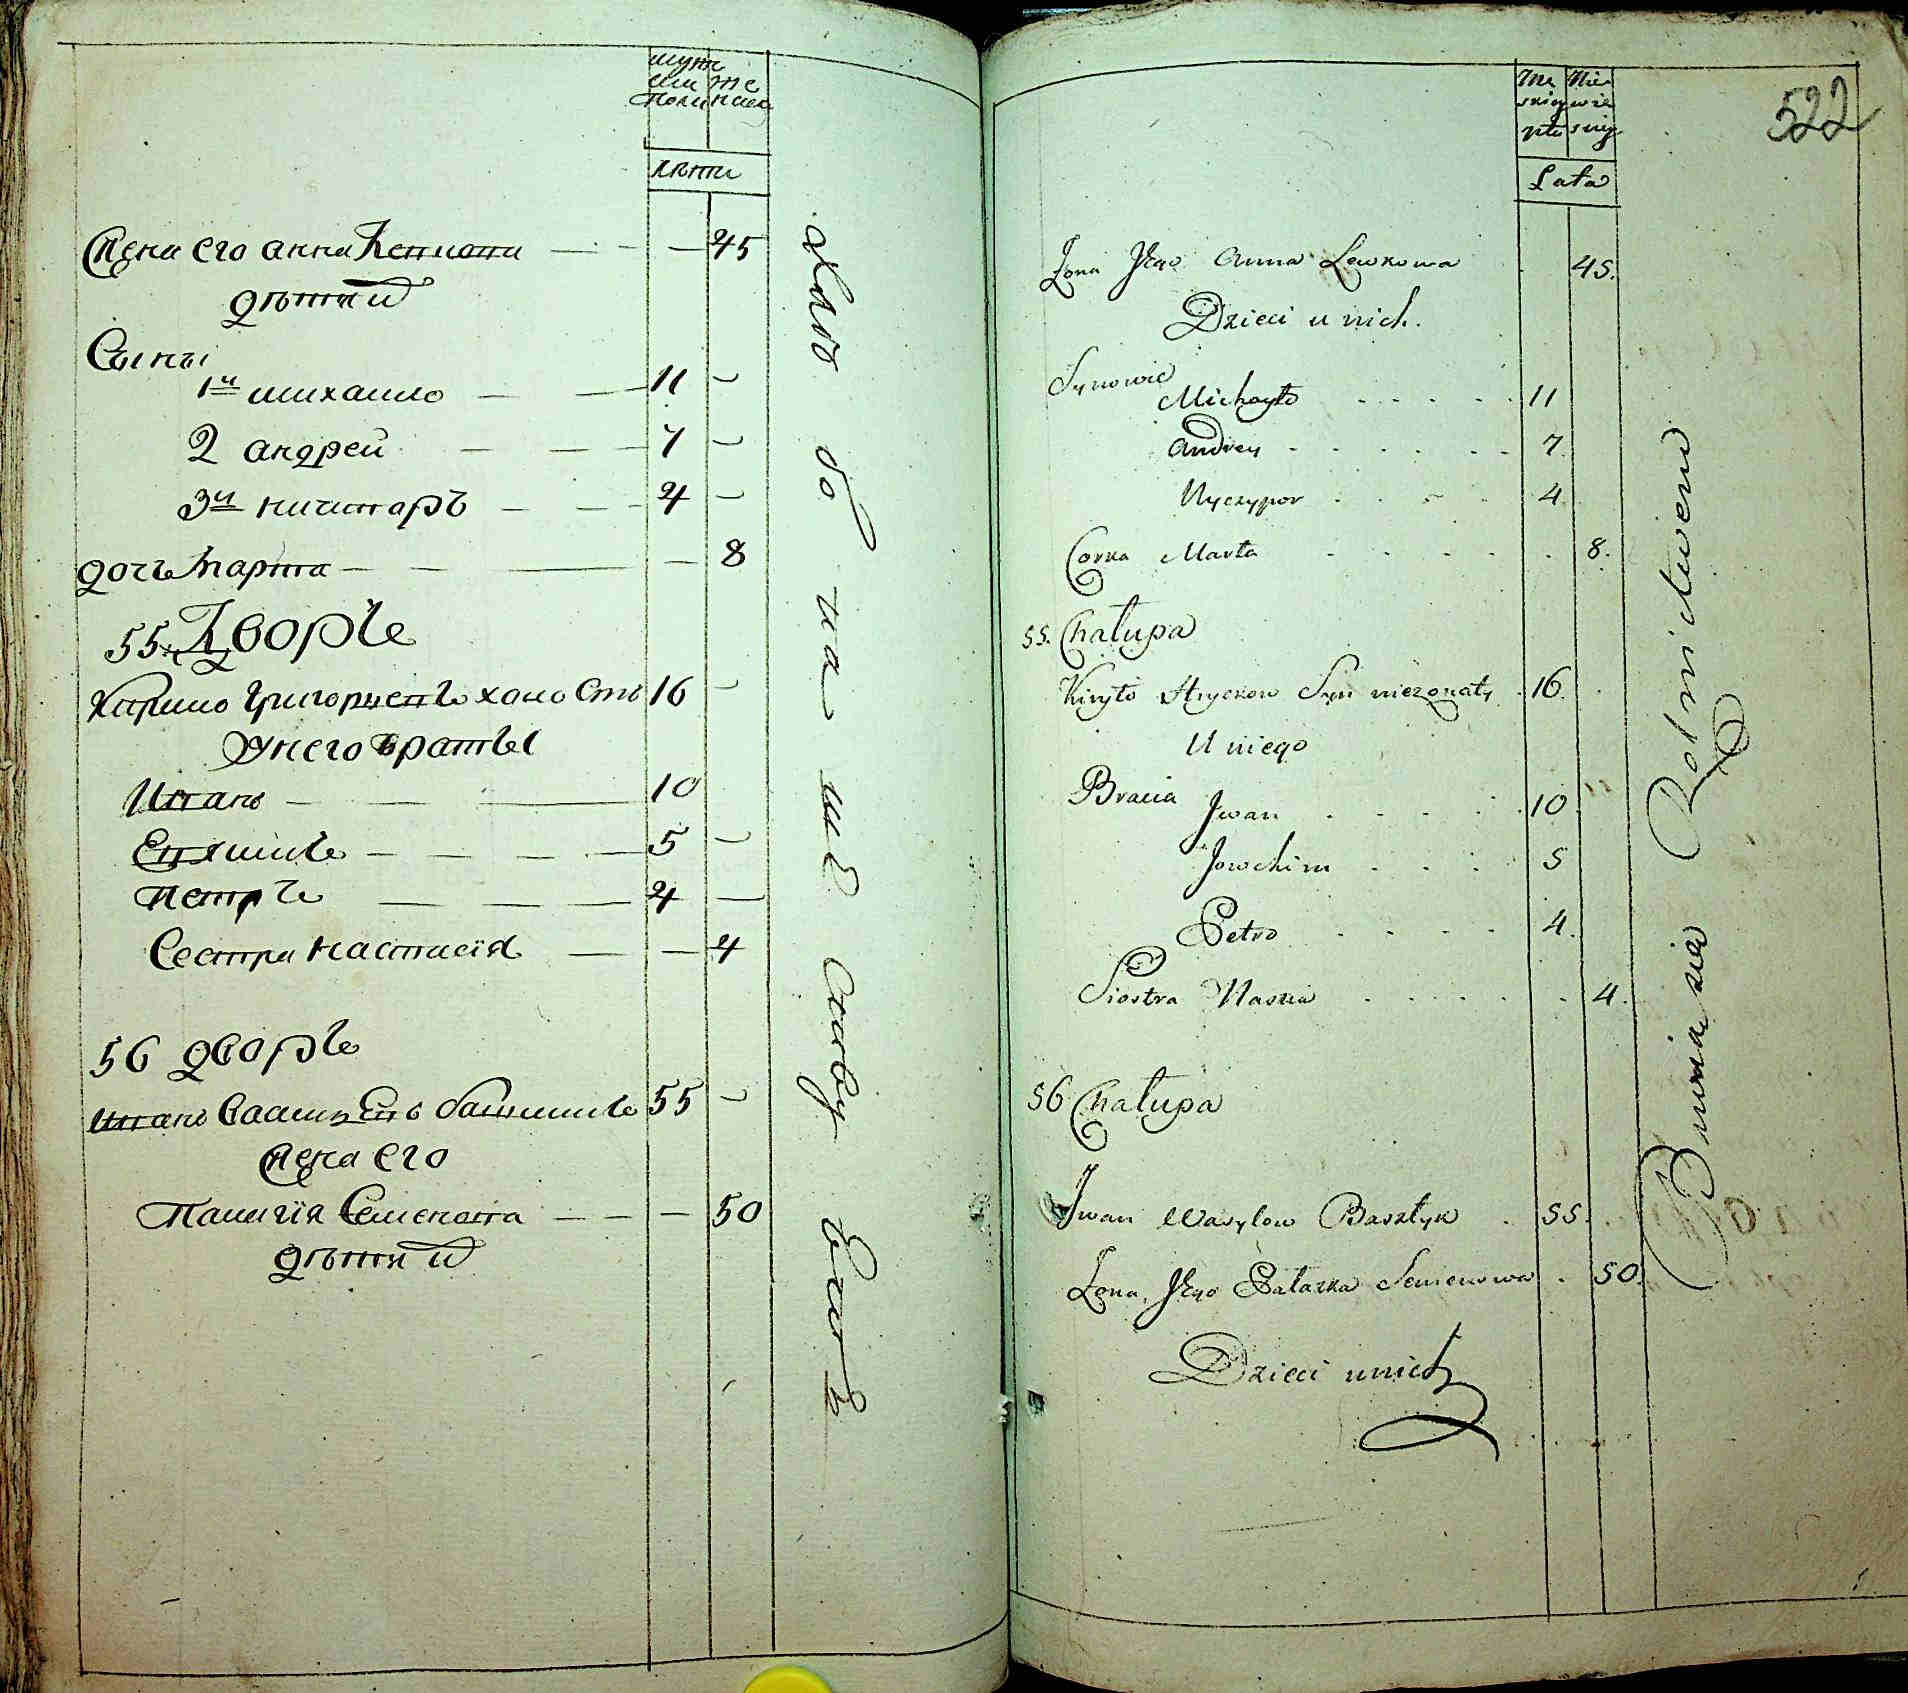 муж
ски же
полу нска
лѣти
Жена его анна Левкова 45
дѣти и
Сыны
1й михаило 11
2 андреи 7
3й ничипоръ 4
дочь марта 8
55 Дворъ
Кирило григориевъ холостъ 16
Унего братьы
Иванъ 10
Ехимъ 5
петръ 4
Сестра настасія 4
56 дворъ
Иванъ Василиевъ баштикъ 55
жена его
палагія Семенова 50
дѣти и
522
Mę Nie
skiey wie
płci skiey
Lata
Zona Jego Anna Lewkowa 45.
Dzieci u nich.
Synowie
Michayło 11
Andrey 7.
Nyczypor 4
Corka Marta 8.
55. Chałupa
Kiryło Hrycków Syn niezonaty 16.
U niego
Bracia
Jwan 10
Jowchim 5
Petro 4.
Siostra Naszka 4.
56 Chałupa
Jwan Wasylow Basztyk 55.
Zona Jego Pałazka Semenowa 50.
Dzieci u nich
Bawia się Rolnictwem